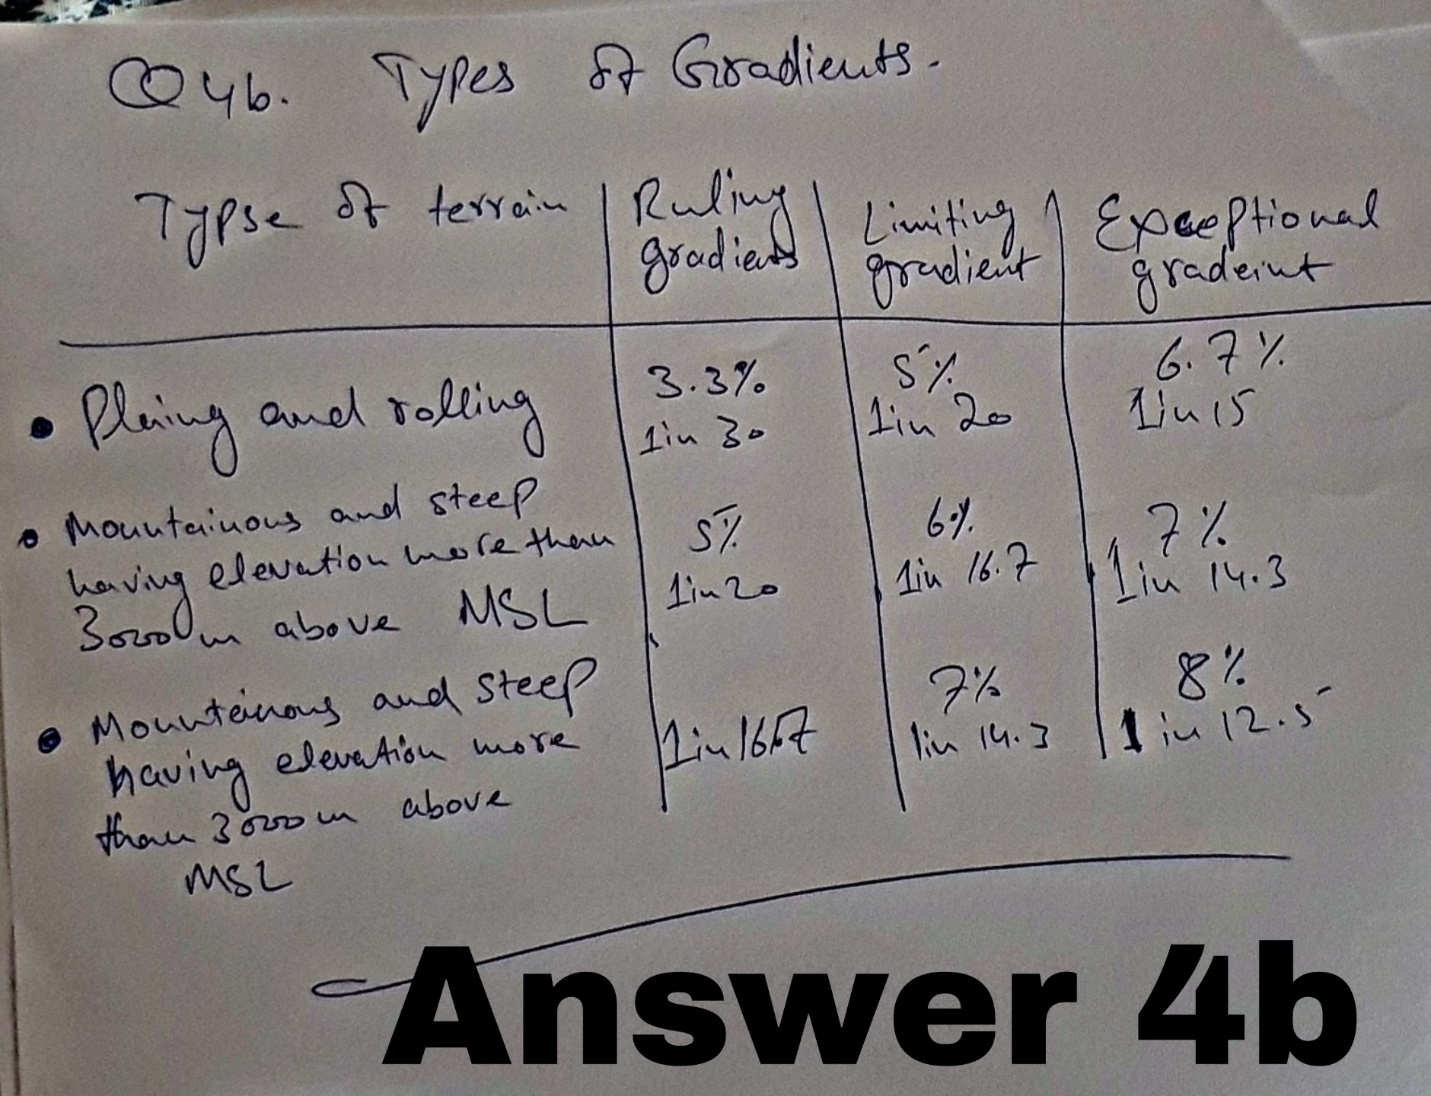 Q 4b. Types of Gradients.
Typse of terrain | Ruling gradients | Limiting gradient | Exceptional gradeint
• Plaing and rolling | 3.3% 1 in 30 | 5% 1 in 20 | 6.7% 1 in 15
• Mountainous and steep
having elevation more than
3000m above MSL | 5% 1 in 20 | 6% 1 in 16.7 | 7% 1 in 14.3
• Mountainous and steep
having elevation more
than 3000m above
MSL | 1 in 16.7 | 7% 1 in 14.3 | 8% 1 in 12.5
Answer 4b